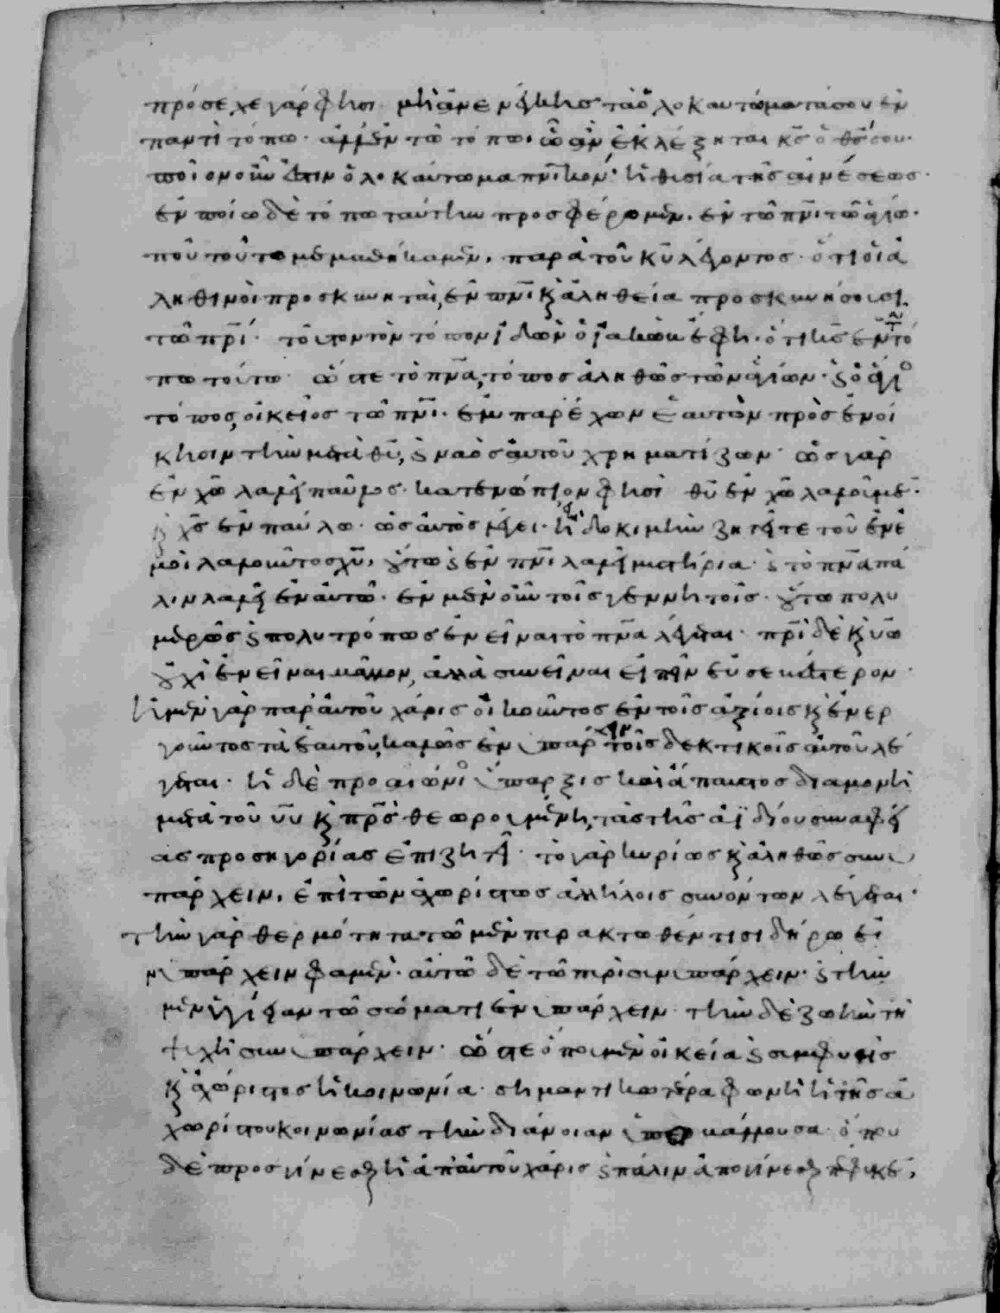 πρόσεχε γάρ φησι μὴ ἀνενέγκῃς τὰ ὁλοκαυτώματά σου ἐν
παντὶ τόπω· ἀλλ' ἐν τῶ τόπωι ὧ ἂν ἐκλέξηται κς ὁ θς σου·
ποῖον οὖν ἐστιν ὁλοκαύτωμα πνικόν· ἡ θυσία τῆς αἰνέσεως·
ἐν ποίω δὲ τόπω ταύτην προσφέρομεν· ἐν τῶ πνι τῶ ἁγίω·
ποῦ τοῦτο μεμαθήκαμεν· παρὰ τοῦ κυ λέγοντος· ὅτι οἱ ἀ
ληθινοὶ προσκυνηταὶ, ἐν πνι κ ἀληθεία προσκυνήσουσι
τῶ πρί· τοῦτον τὸν τόπον ἰδὼν ὁ ἰακὼβ ἔφη· ὅτι κς ἐν τῶ τό
πω τούτω· ὥστε τὸ πνα, τόπος ἀληθῶς τῶν ἁγίων· κ ὁ ἅγιος
τόπος, οἰκεῖος τῶ πνι· ἐμπαρέχων ἑαυτὸν πρὸς ἐνοί
κησιν τὴν μετὰ θυ, κ ναὸς αὐτοῦ χρηματίζων· ὡς γὰρ
ἐν χω λαλεῖ παῦλος· κατενώπιον φησὶ θυ ἐν χω λαλοῦμεν·
κ χς ἐν παύλω· ὡς αὐτὸς λέγει· ἢ δοκιμὴν ζητεῖτε τοῦ ἐν ἐ
μοὶ λαλοῦντος χυ, οὕτω κ ἐν πνι λαλεῖ μυστήρια· κ τὸ πνα πά
λιν λαλεῖ ἐν αὐτῶ· ἐν μὲν οὖν τοῖς γεννητοῖς· οὕτω πολυ
μερῶς κ πολυτρόπως ἐνεῖναι τὸ πνα λέγεται· πρὶ δὲ κ υω
οὐχὶ ἐνεῖναι μᾶλλον, ἀλλὰ συνεῖναι εἰπεῖν εὐσεβέστερον·
ἡ μὲν γὰρ παρ' αὐτοῦ χάρις οἰκοῦντος ἐν τοῖς ἀξίοις κ ἐνερ
γοῦντος τὰ ἑαυτοῦ, καλῶς ἐνυπάρχειν τοῖς δεκτικοῖς αὐτοῦ λέ
γεται· ἡ δὲ προαιώνιος ὕπαρξις καὶ ἄπαυστος διαμονὴ
μετὰ τοῦ υυ κ πρς θεωρουμένη, τὰς τῆς ἀϊδίου συναφεί
ας προσηγορίας ἐπιζητεῖ· τὸ γὰρ κυρίως κ ἀληθῶς συνυ
πάρχειν, ἐπὶ τῶν ἀχωρίστως ἀλλήλοις συνόντων λέγεται·
τὴν γὰρ θερμότητα τῶ μὲν πυρακτωθέντι σιδήρω ἐ
νυπάρχειν φαμὲν· αὐτῶ δὲ τῶ πυρὶ συνυπάρχειν· κ τὴν
μὲν ὑγίειαν τῶ σώματι ἐνυπάρχειν· τὴν δὲ ζωὴν τῆ
ψυχῆ συνυπάρχειν· ὥστε ὅπου μὲν οἰκεία κ συμφυὴς
κ ἀχώριστος ἡ κοινωνία· σημαντικωτέρα φωνὴ ἡ τῆς ἀ
χωρίστου κοινωνίας τὴν διάνοιαν ὑποβάλλουσα· ὅπου
δὲ προσγίνεσθαι ἡ ἀπ' αὐτοῦ χάρις κ πάλιν ἀπογίνεσθαι πέφυκε,